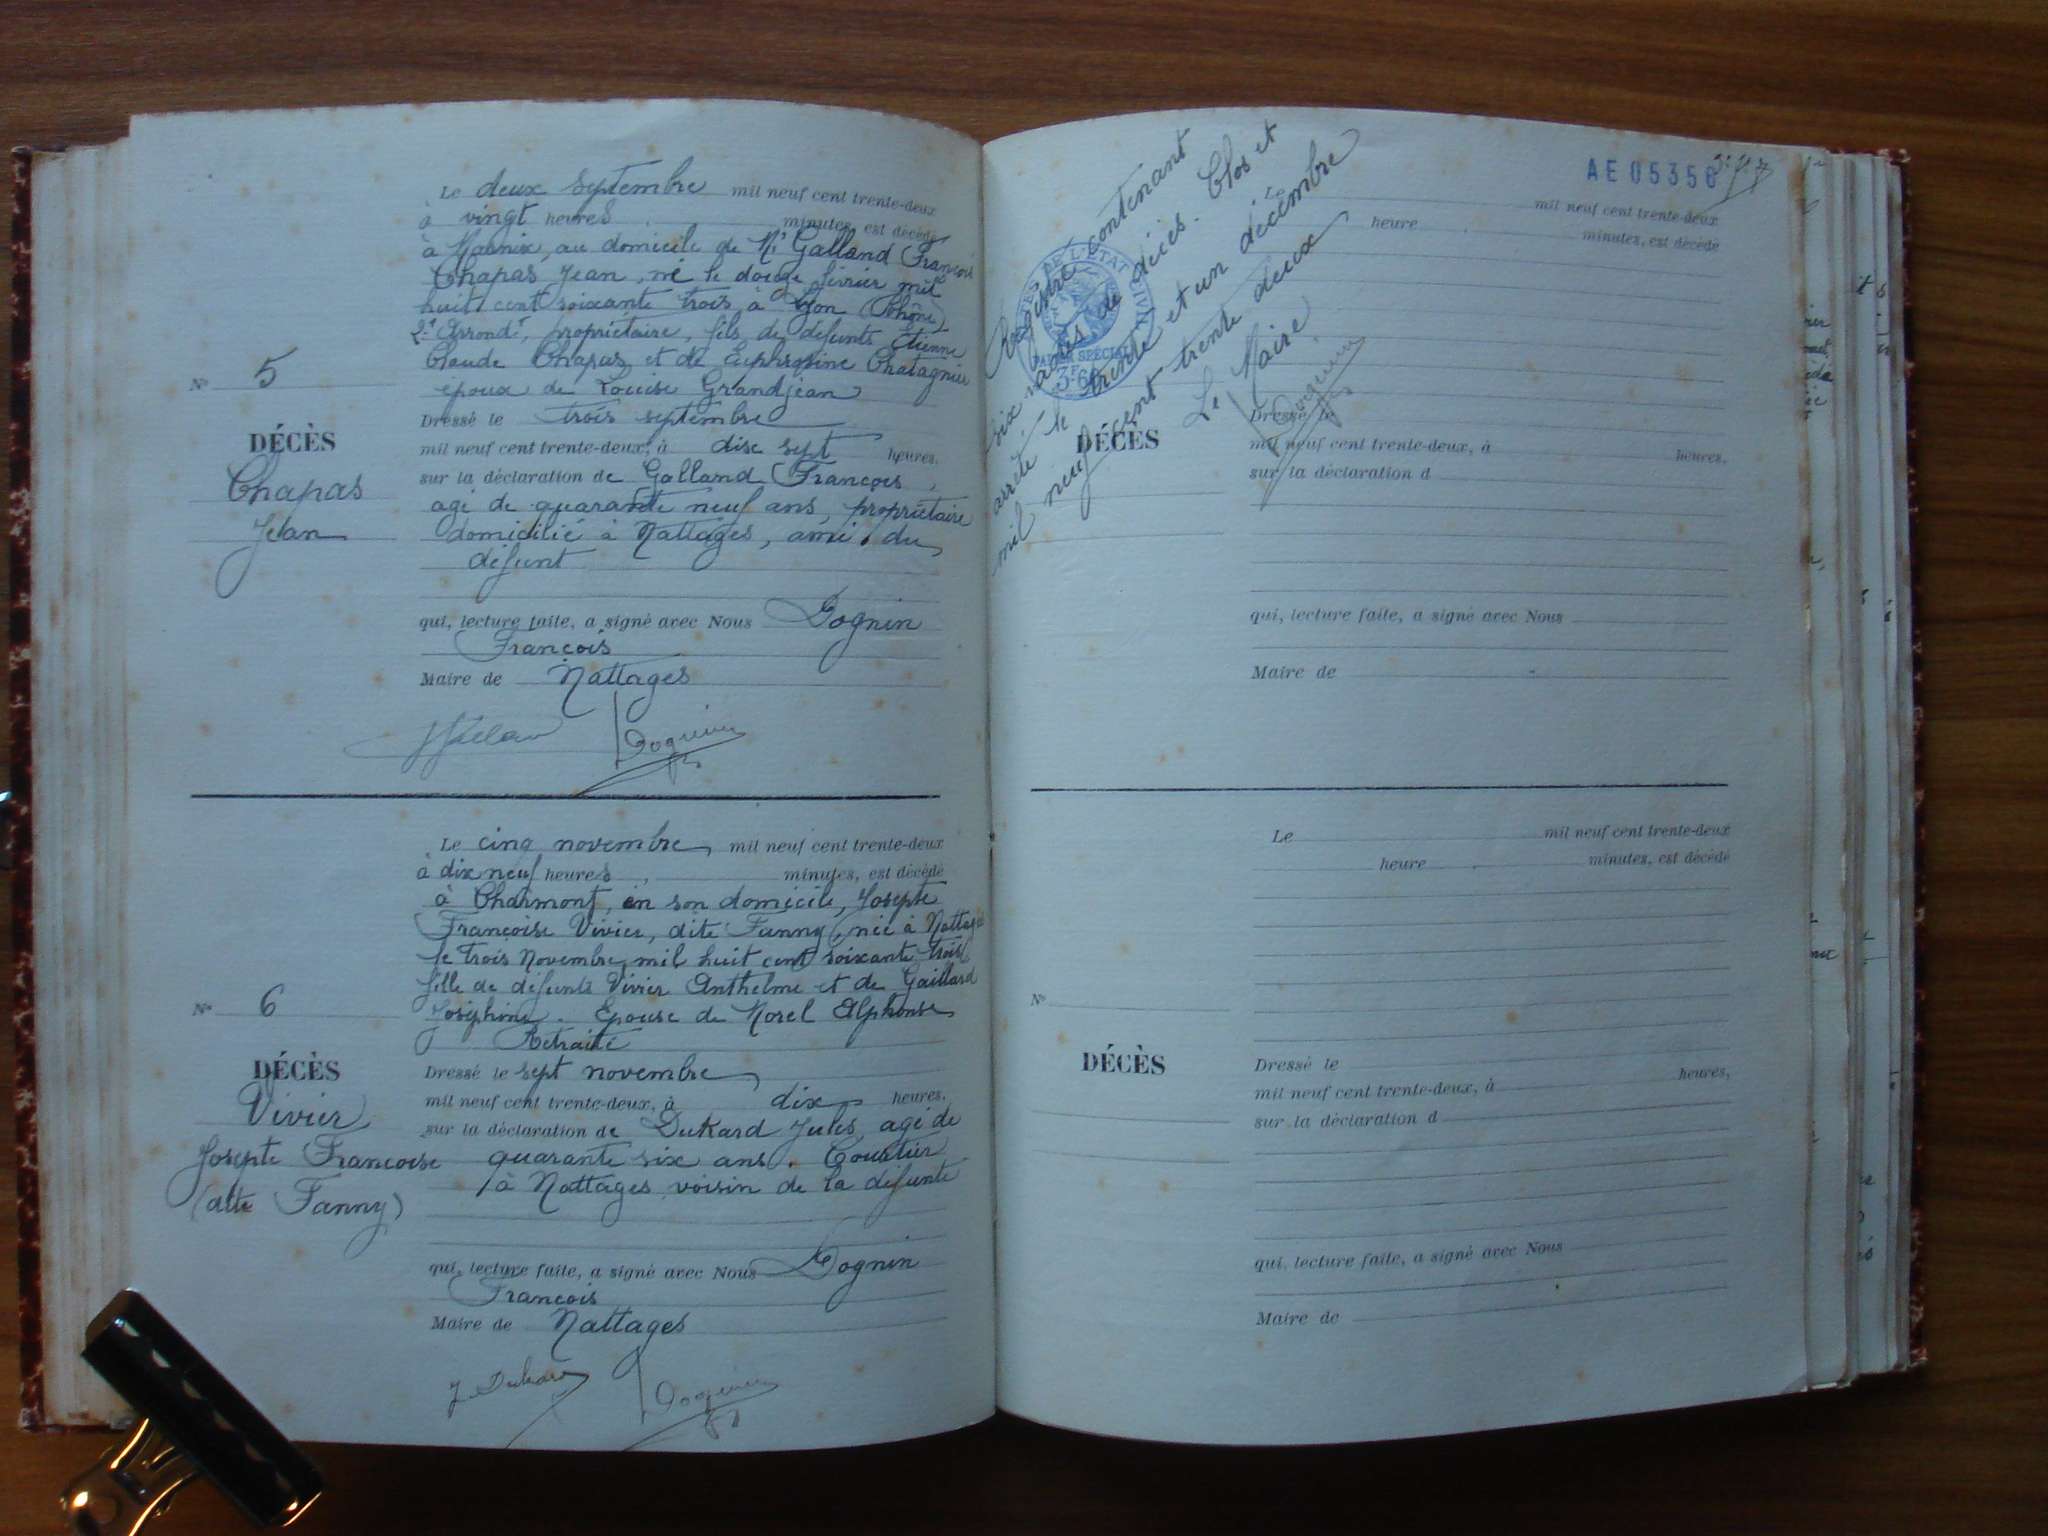 Le deux septembre mil neuf cent trente-deux
à vingt heures minutes, est décédé
à Marnix, au domicile de Mr Galland François
Chapas Jean, né le douze février mil
huit cent soixante trois à Lyon (Rhône)
2e Arrondt, propriétaire, fils de défunts Etienne
Claude Chapas et de Euphrosine Chatagnier
époux de Louise Grandjean
N° 5
DÉCÈS
Chapas
Jean
Dressé le trois septembre
mil neuf cent trente-deux, à dix sept heures,
sur la déclaration de Galland François,
agé de quarante neuf ans, propriétaire
domicilié à Nattages, ami du
défunt
qui, lecture faite, a signé avec Nous Dognin
François
Maire de Nattages
Dognin
Le cinq novembre mil neuf cent trente-deux
à dix neuf heures, minutes, est décédé
à Charmont, en son domicile, Josepte
Françoise Vivier, dite Fanny, née à Nattages
le trois Novembre mil huit cent soixante trois
fille de défunts Vivier Anthelme et de Gaillard
Joséphine. Epouse de Morel Alphonse
Retraité
N° 6
DÉCÈS
Vivier
Josepte Francoise
(dite Fanny)
Dressé le sept novembre
mil neuf cent trente-deux, à dix heures,
sur la déclaration de Dukard Jules, agé de
quarante six ans. Courtier
à Nattages, voisin de la défunte
qui, lecture faite, a signé avec Nous Dognin
François
Maire de Nattages
J Dukard
Dognin
AE 05356
Registre contenant
six actes de décès. Clos et
arrêté le trente et un décembre
mil neuf cent trente deux
Le Maire
Dognin
DE L'ÉTAT CIVIL
PAPIER SPÉCIAL
3F.60
Le mil neuf cent trente-deux
heure minutes, est décédé
DÉCÈS
Dressé le
mil neuf cent trente-deux, à heures,
sur la déclaration d
qui, lecture faite, a signé avec Nous
Maire de
Le mil neuf cent trente-deux
heure minutes, est décédé
N°
DÉCÈS
Dressé le
mil neuf cent trente-deux, à heures,
sur la déclaration d
qui, lecture faite, a signé avec Nous
Maire de